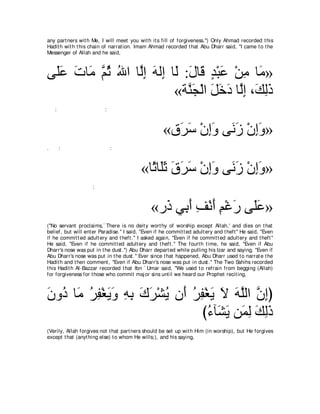 any partners with Me, I will meet you with its fill of forgiveness.") Only Ahmad recorded this
Hadith with this chain of narration. Imam Ahmad recorded that Abu Dharr said, "I came to the
Messenger of Allah and he said,
«مَا مِنْ عَبْدٍ قَالَ: لَا إِلَهَ إِلَّا اللهُ ثُمَّ مَاتَ عَلَى
ذَلِكَ، إِلَّا دَخَلَ الْجَنَّة»
: :
«وَإِنْ زَنَى وَإِنْ سَرَق»
. : ::
«وَإِنْ زَنَى وَإِنْ سَرَقَ ثَلَاثًا»
:
«عَلَى رَغْمِ أَنْفِ أَبِي ذَر»
("No servant proclaims, `There is no deity worthy of worship except Allah,' and dies on that
belief, but will enter Paradise." I said, "Even if he committed adultery and theft" He said, "Even
if he committed adultery and theft." I asked again, "Even if he committed adultery and theft"
He said, "Even if he committed adultery and theft." The fourth time, he said, "Even if Abu
Dharr's nose was put in the dust.") Abu Dharr departed while pulling his Izar and saying, "Even if
Abu Dharr's nose was put in the dust." Ever since that happened, Abu Dharr used to narrate the
Hadith and then comment, "Even if Abu Dharr's nose was put in dust." The Two Sahihs recorded
this Hadith Al-Bazzar recorded that Ibn `Umar said, "We used to refrain from begging (Allah)
for forgiveness for those who commit major sins until we heard our Prophet reciting,
(إِنَّ اللَّهَ لاَ يَغْفِرُ أَن يُشْرَكَ بِهِ وَيَغْفِرُ مَا دُونَ
ذَلِكَ لِمَن يَشَآءُ)
(Verily, Allah forgives not that partners should be set up with Him (in worship), but He forgives
except that (anything else) to whom He wills;), and his saying,